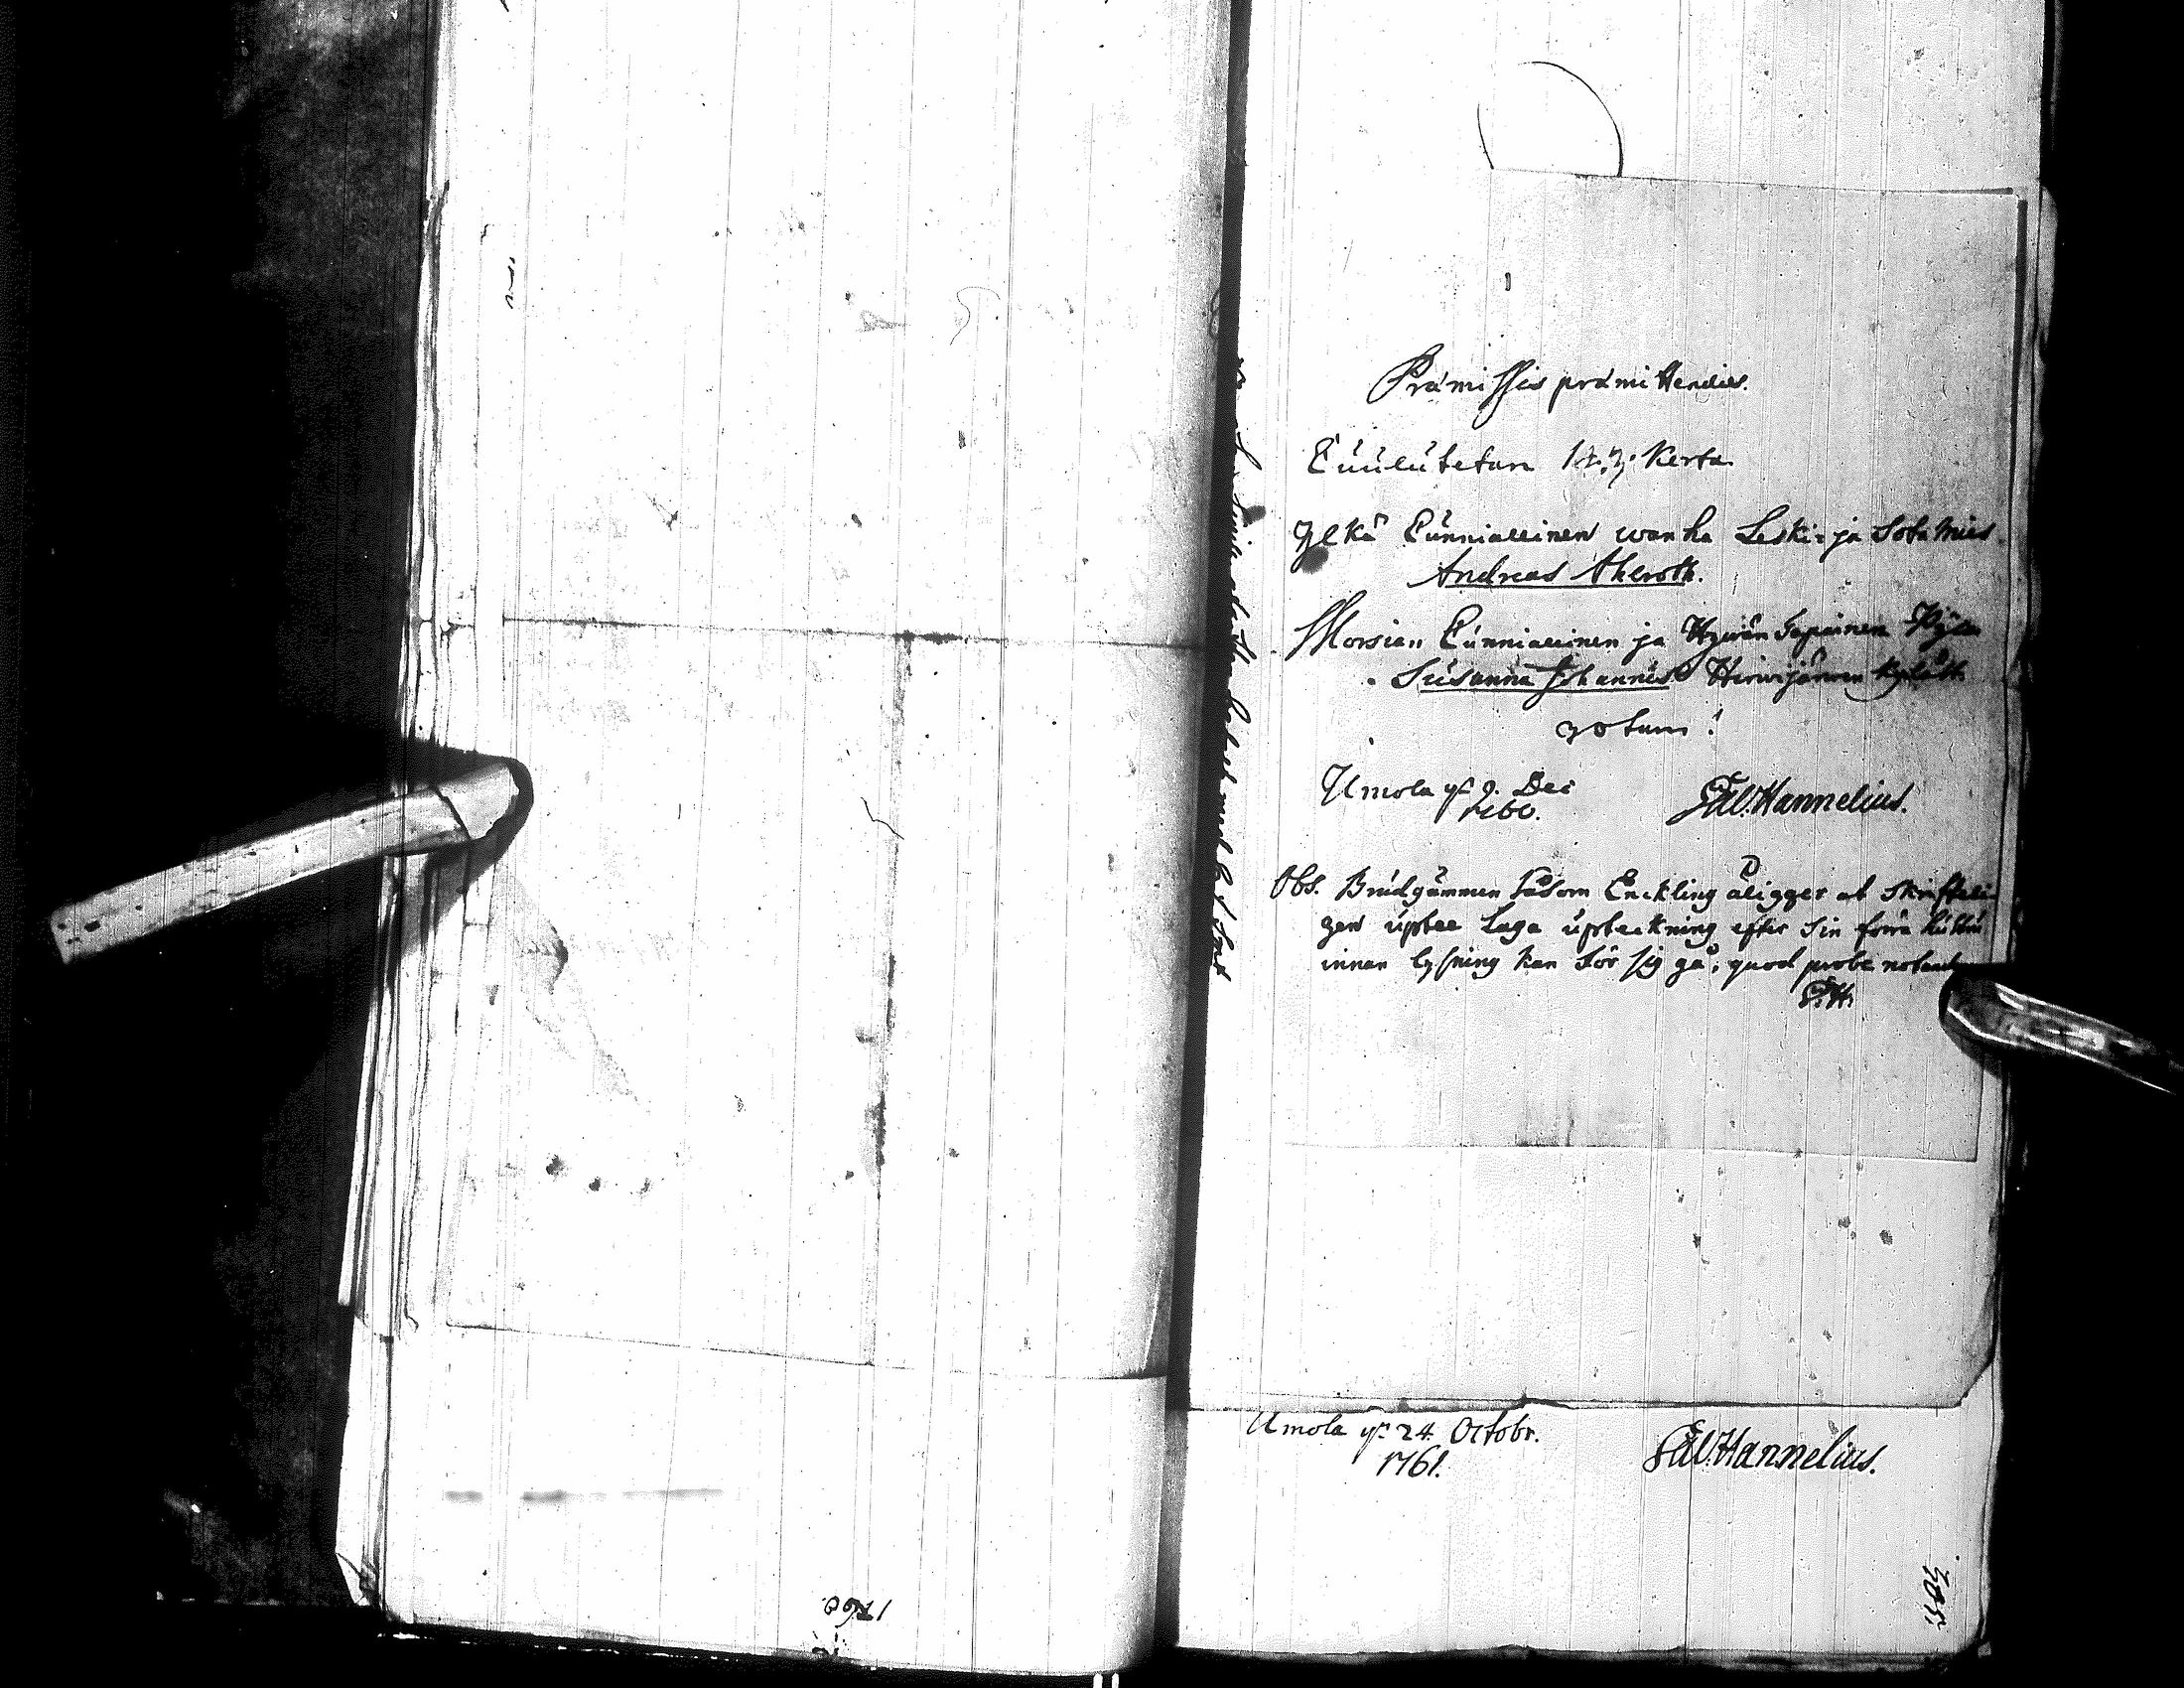 Præmissis præmittendis.
Cuulutetan 1. 2. 3. Kerta
Ylkä Cunniallinen wanha Leski- ja Sotamies
Andreas Ahlroth.
Morsian Cunniallinen ja Hywän Tapainen Pijka
Susanna Johannis Hirwijärwen Kyläst.
Umola d. 9. Dec
1760.
GW.Hannelius.
Obs. Brudgummen såsom Enckling åligger at Skrifteli-
gen uptee Laga upteckning efter Sin förra hustru
innan lysning kan för sig gå, quod probe notandum
Umola d. 24. Octobr.
1761.
GW.Hannelius.
1760.